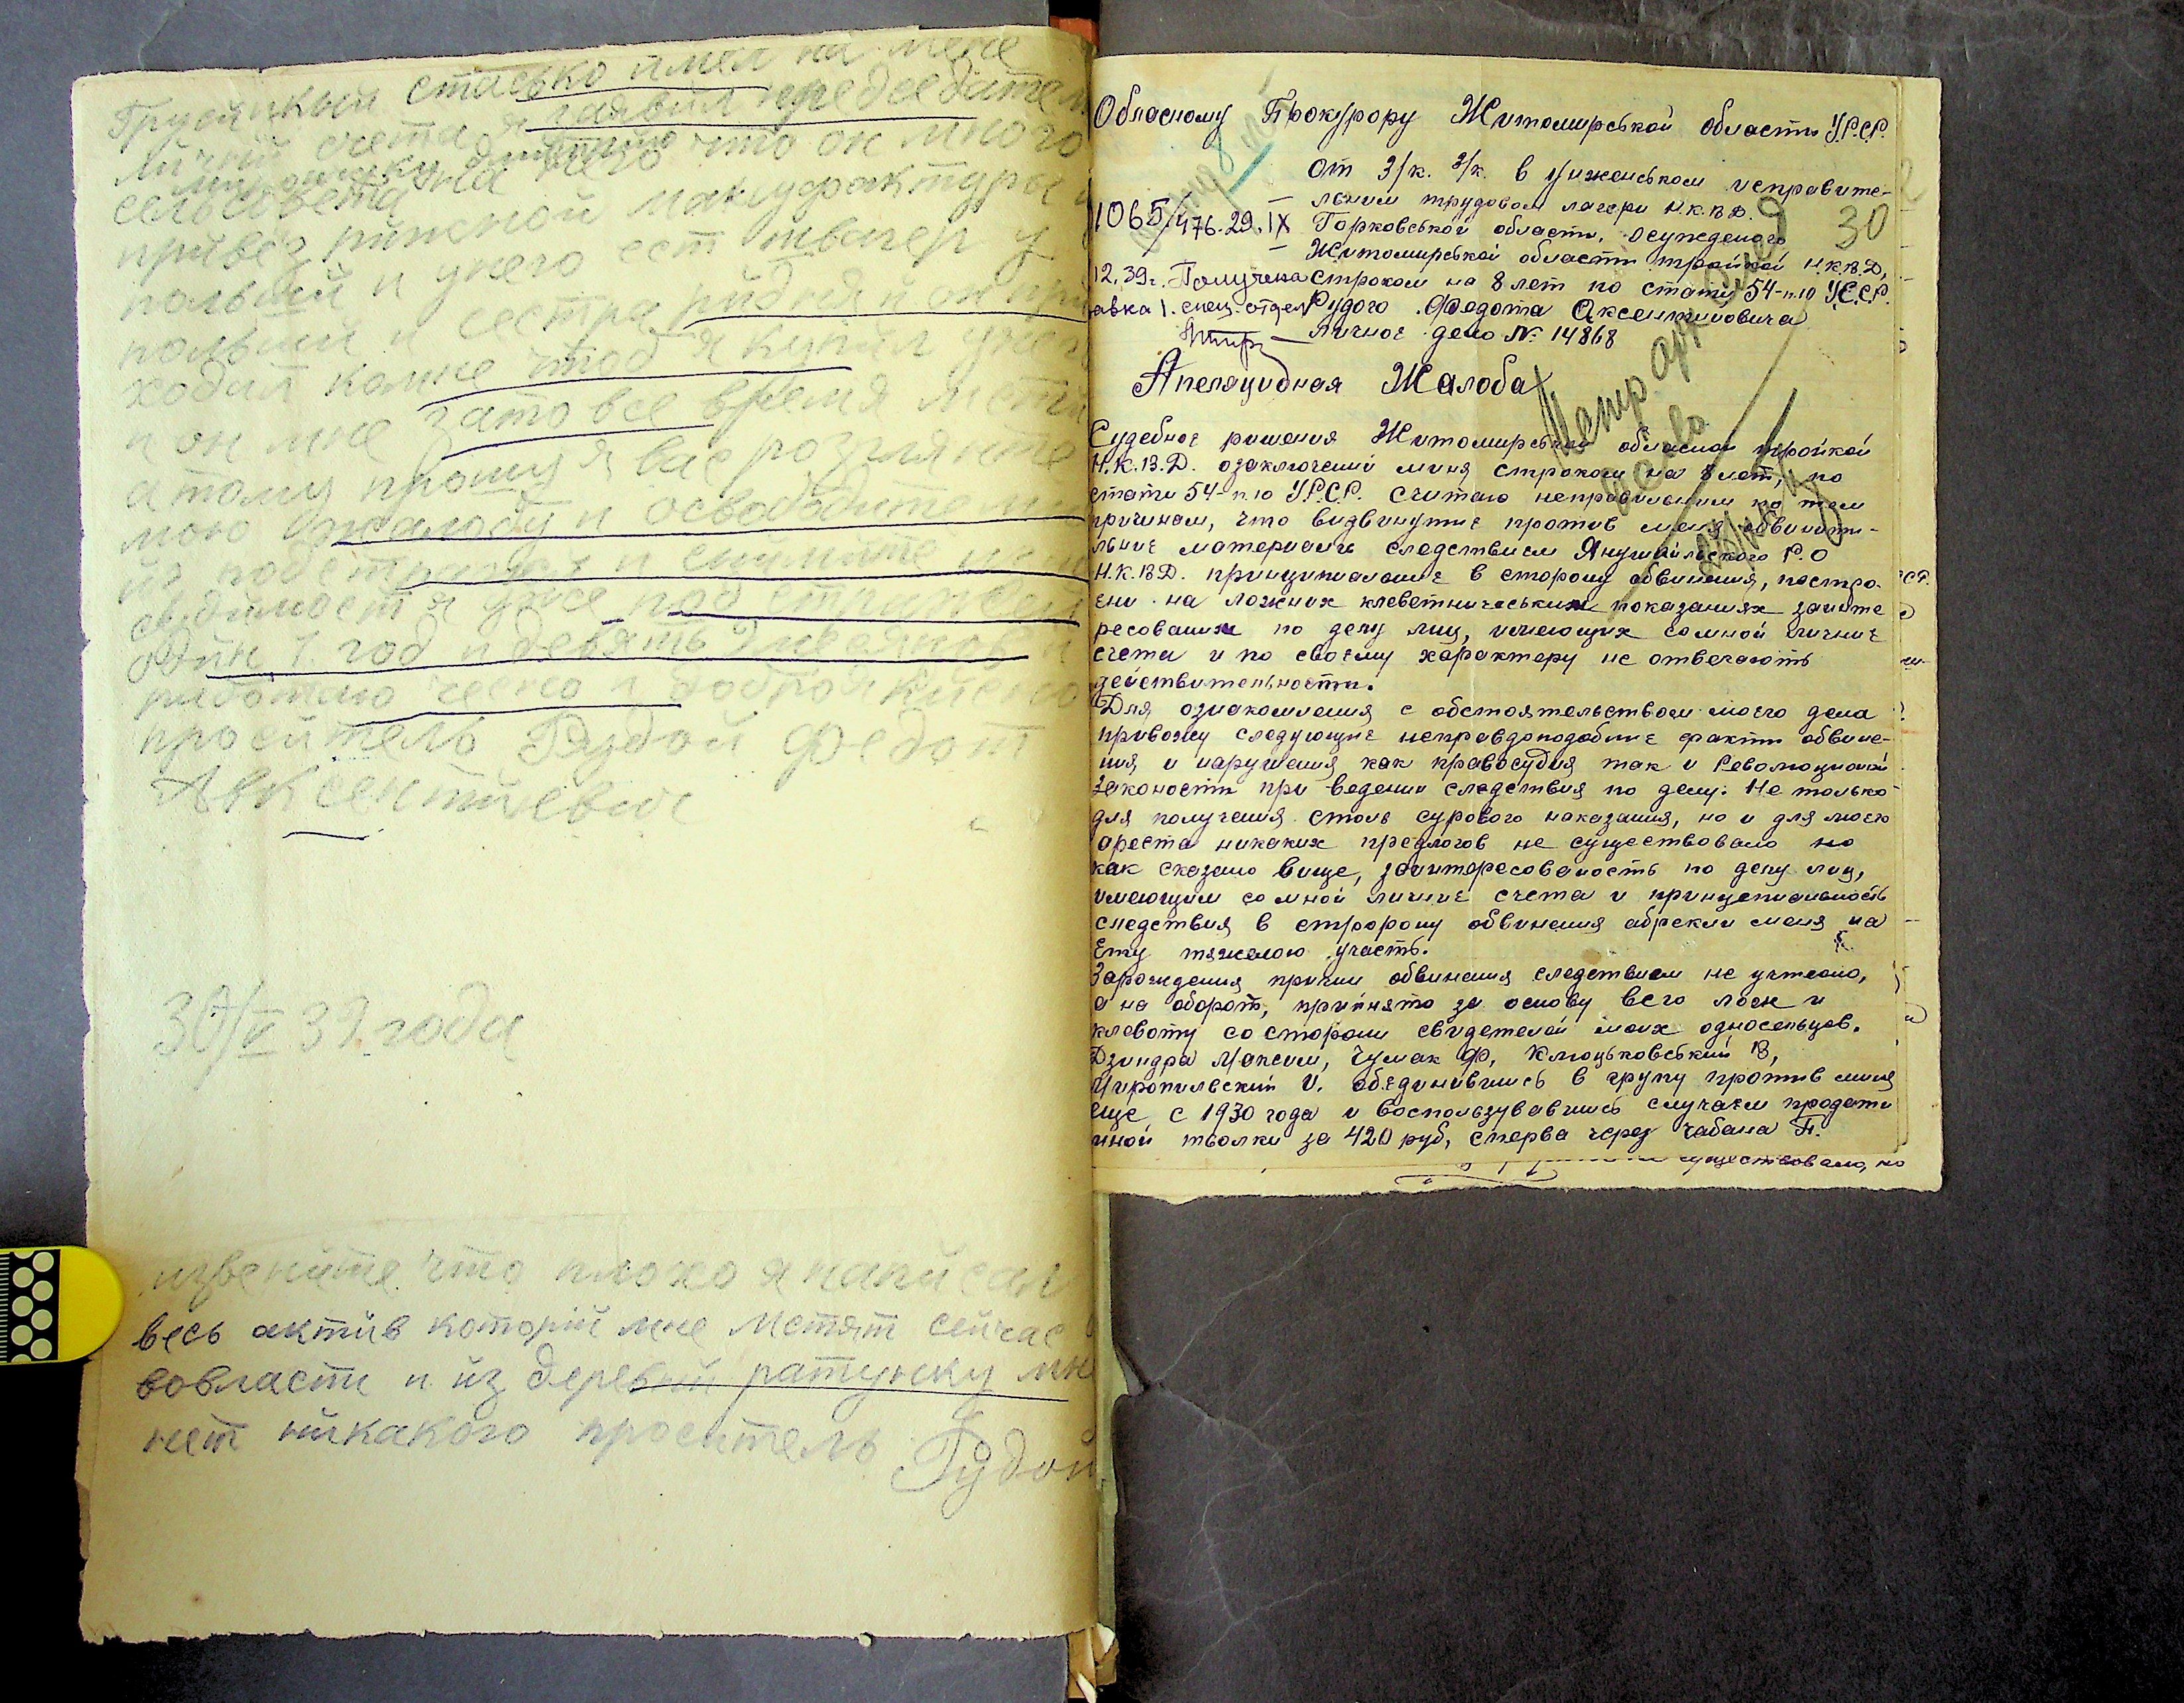 стасько имел на мене
личий счета я заявил председателю
сельсовета на него что он много
привёз ріжной мануфактуры
польши и унего ест швагер у
польши и сестра рідная и он при
ходил комне чтоб я купил унего
и он мне зато все время мстит
атому прошу я вас розгляните
мою жалобу и освободите
один 1. год и девять 9 месяцов и
работаю чесно и добро
проситель Рудой Федот
Авксентиевич
30/V 39. года
извените что плохо я написал
весь актив которій мне мстят сейчас
вовласти и из деревни ратунку мне
нет никакого проситель Рудой
Обласному Прокурору Житомирськой области У.Р.С.Р.
От З/к. З/к. в Унженськом исправите-
льним трудовом лагери Н.К.В.Д.
Горковськой области, осужденого
Житомирськой области тройкой Н.К.В.Д,
строком на 8 лет по стати 54-п.10 У.С.С.Р.
Рудого Федота Аксентиовича
Личное дело № 14868
30
1065/476.29.IX
12.39г. Получена
авка 1. спец. отдел
Апеляцидная Жалоба
Судебное ришения Житомирськой обласной тройкой
Н.К.В.Д. озаключений миня строком на 8 лет, по
стати 54-п.10 У.Р.С.Р. считаю неправильним по тем
причинам, что видвинутие против меня обвините-
льние материали следствием Янушпільського Р.О
Н.К.В.Д. принципиальние в сторону обвинения, постро-
ени на ложних клеветничеських показаниях заинте
ресованих по делу лиц, имеющих сомной личние
счета и по своему характеру не отвечають
действительности.
Для ознакомления с обстоятельством моего дела
привожу следующие неправдоподобние факти обвине-
ния и нарушения как правосудия так и Революционой
Законости при ведении следствия по делу: Не только
для получения столь сурового наказания, но и для моего
ареста никаких предлогов не существовало но
как сказано више, заинтересованость по делу лиц,
имеющим со мной личние счета и принцепиальность
следствия в сторорону обвинения абрекли меня на
Ету тяжелою участь.
Зарождения причин обвинения следствием не учтено,
а на оборот, прийнято за основу всего лож и
клевоту со сторони свидетелей моих односельцов.
Дзиндра Максим, Чумак Ф, Клюцьковський В,
Миропильский И. обединившись в групу против миня
еще с 1930 года и воспользувавшись случаем продати
мной тьолки за 420 руб, сперва через чабана П.
существовало, но